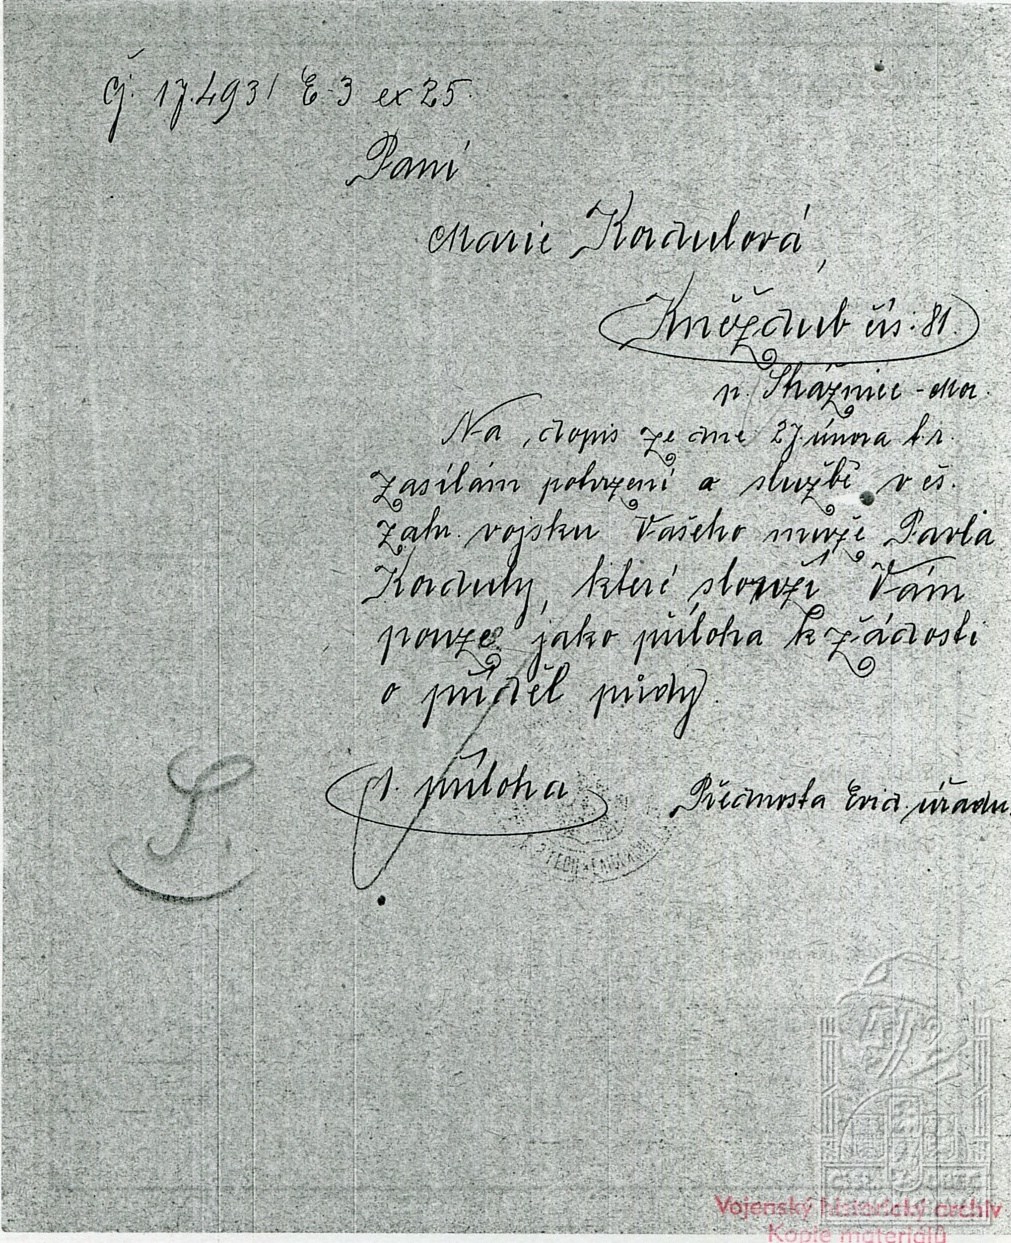 Čj. 17.493/ E-3 ex 25.
Paní
Marie Kadulová,
Kněždub čís. 81.
p. Strážnice - Mor.
Na dopis ze dne 27. února t.r.
zasílám potvrzení o službě v čs.
zahr. vojsku Vašeho muže Pavla
Kaduly, které slouží Vám
pouze jako příloha k žádosti
o příděl půdy.
1. příloha
Přednosta Evid. úřadu
ČS
OBEC
Vojenský historický archiv
Kopie materiálů